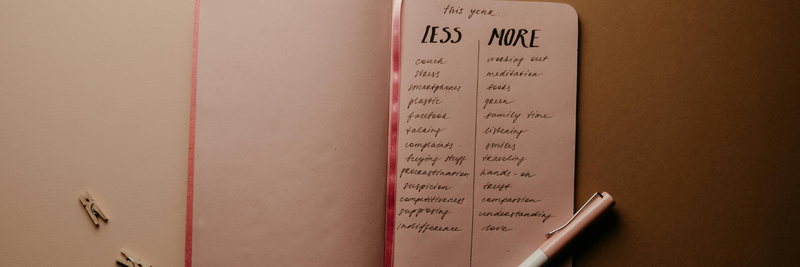 this year...
LESS MORE
couch working out
stress meditation
smartphones books
plastic green
facebook family time
talking listening
complaints smiles
buying stuff traveling
procrastination hands-on
suspicion trust
competitiveness compassion
supposing understanding
indifference love